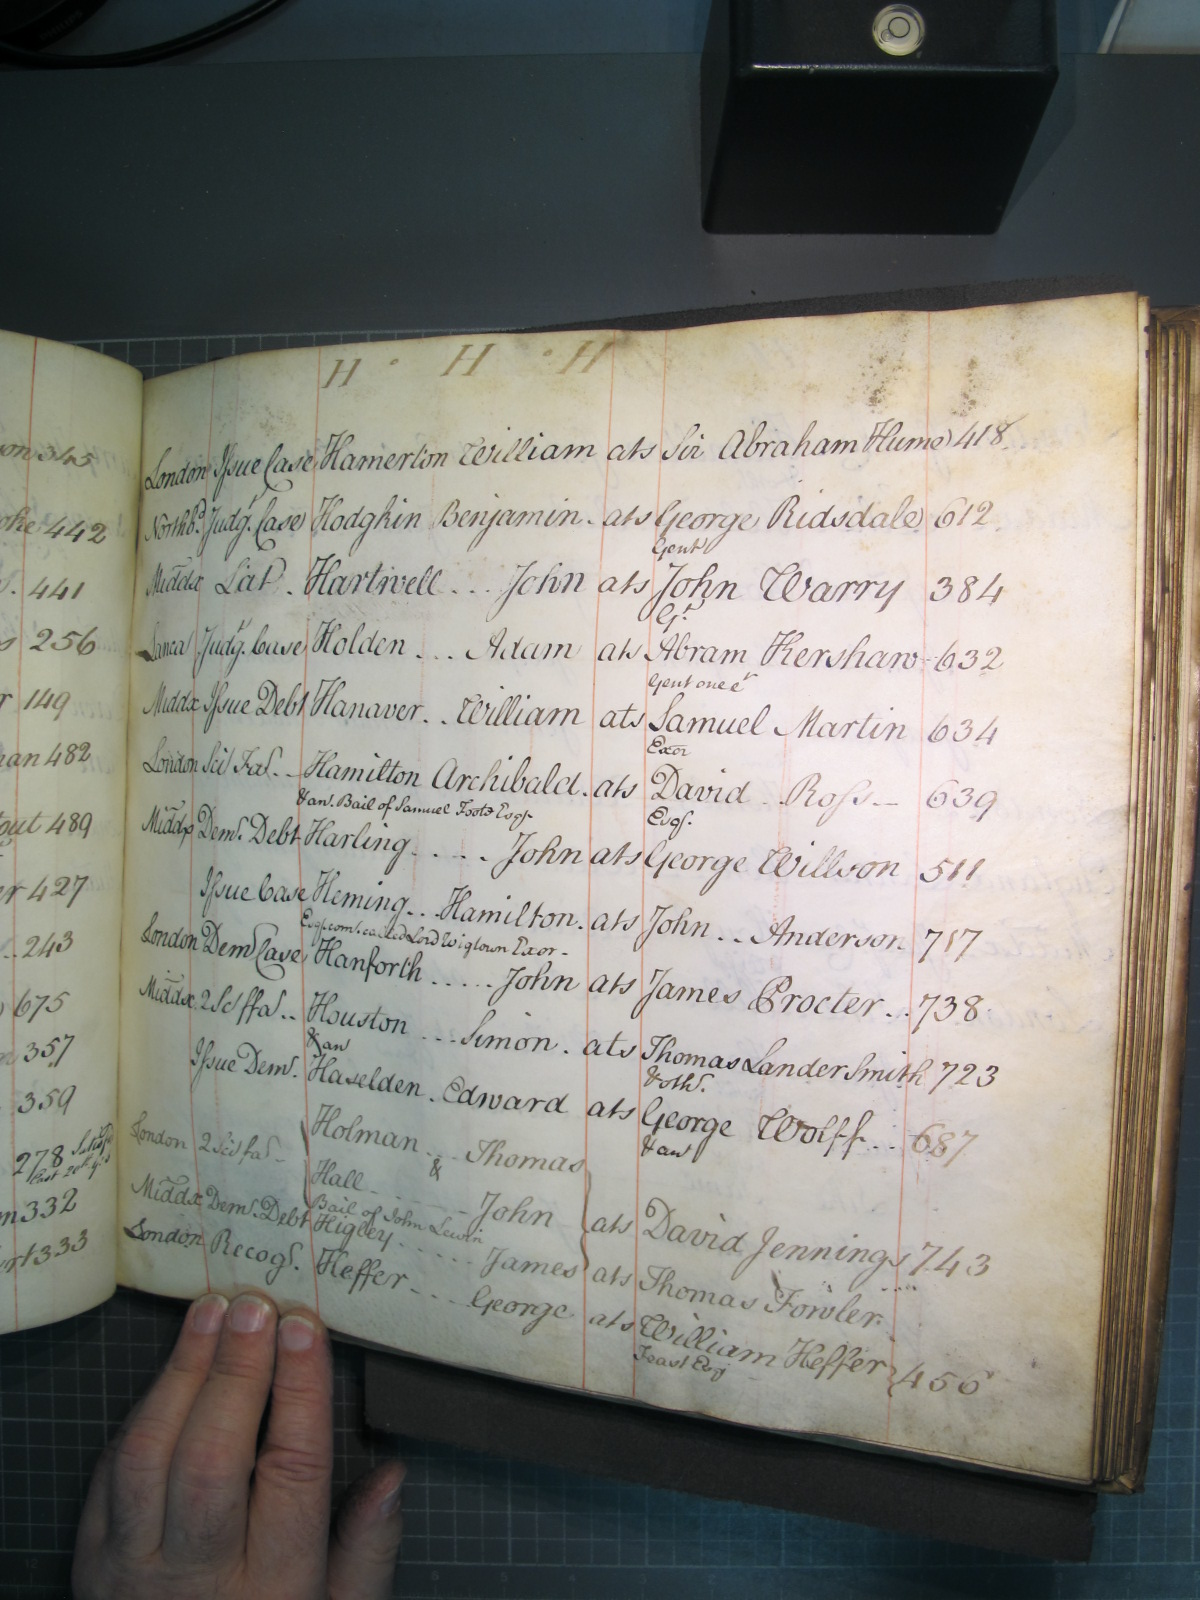 on 345
oke 442
441
s 256
r 149
man 482
tout 489
er 427
243
675
357
359
278 Satisfd
m 332
rt 333
H · H · H
London Issue Case Hamerton William ats Sir Abraham Hume 418
Northbd. Judgt. Case Hodgkin Benjamin. ats George Ridsdale 612
Gent
Middx Lat. Hartwell ... John ats John Warry 384
Gt.
Lanca Judgt. Case Holden ... Adam ats Abram Kershaw 632
Gent one &c
Middx Issue Debt Hanaver.. William ats Samuel Martin 634
Exor
London Sci Fas. Hamilton Archibald. ats David .. Ross 639
& anr. Bail of Samuel Foote Esqr. Esqr.
Middx Demr. Debt Harling .... John ats George Willson 511
Issue Case Heming... Hamilton. ats John .. Anderson 717
Esqr. com. called Lord Wigtown Exor
London Demr. Case Hanforth ..... John ats James Procter .. 738
Middx 2 Sci ffas.. Houston ... Simon. ats Thomas Lander Smith 723
& an & oths.
Issue Demr. Haselden. Edward ats George Wolff... 687
& an
London 2 Sci fas Holman ... Thomas
&
Hall ... John ats David Jennings 743
Bail of John Lewin
Middx Demr. Debt Higley ..... James ats Thomas Fowler
London Recogs. Heffer ... George ats William Heffer 456